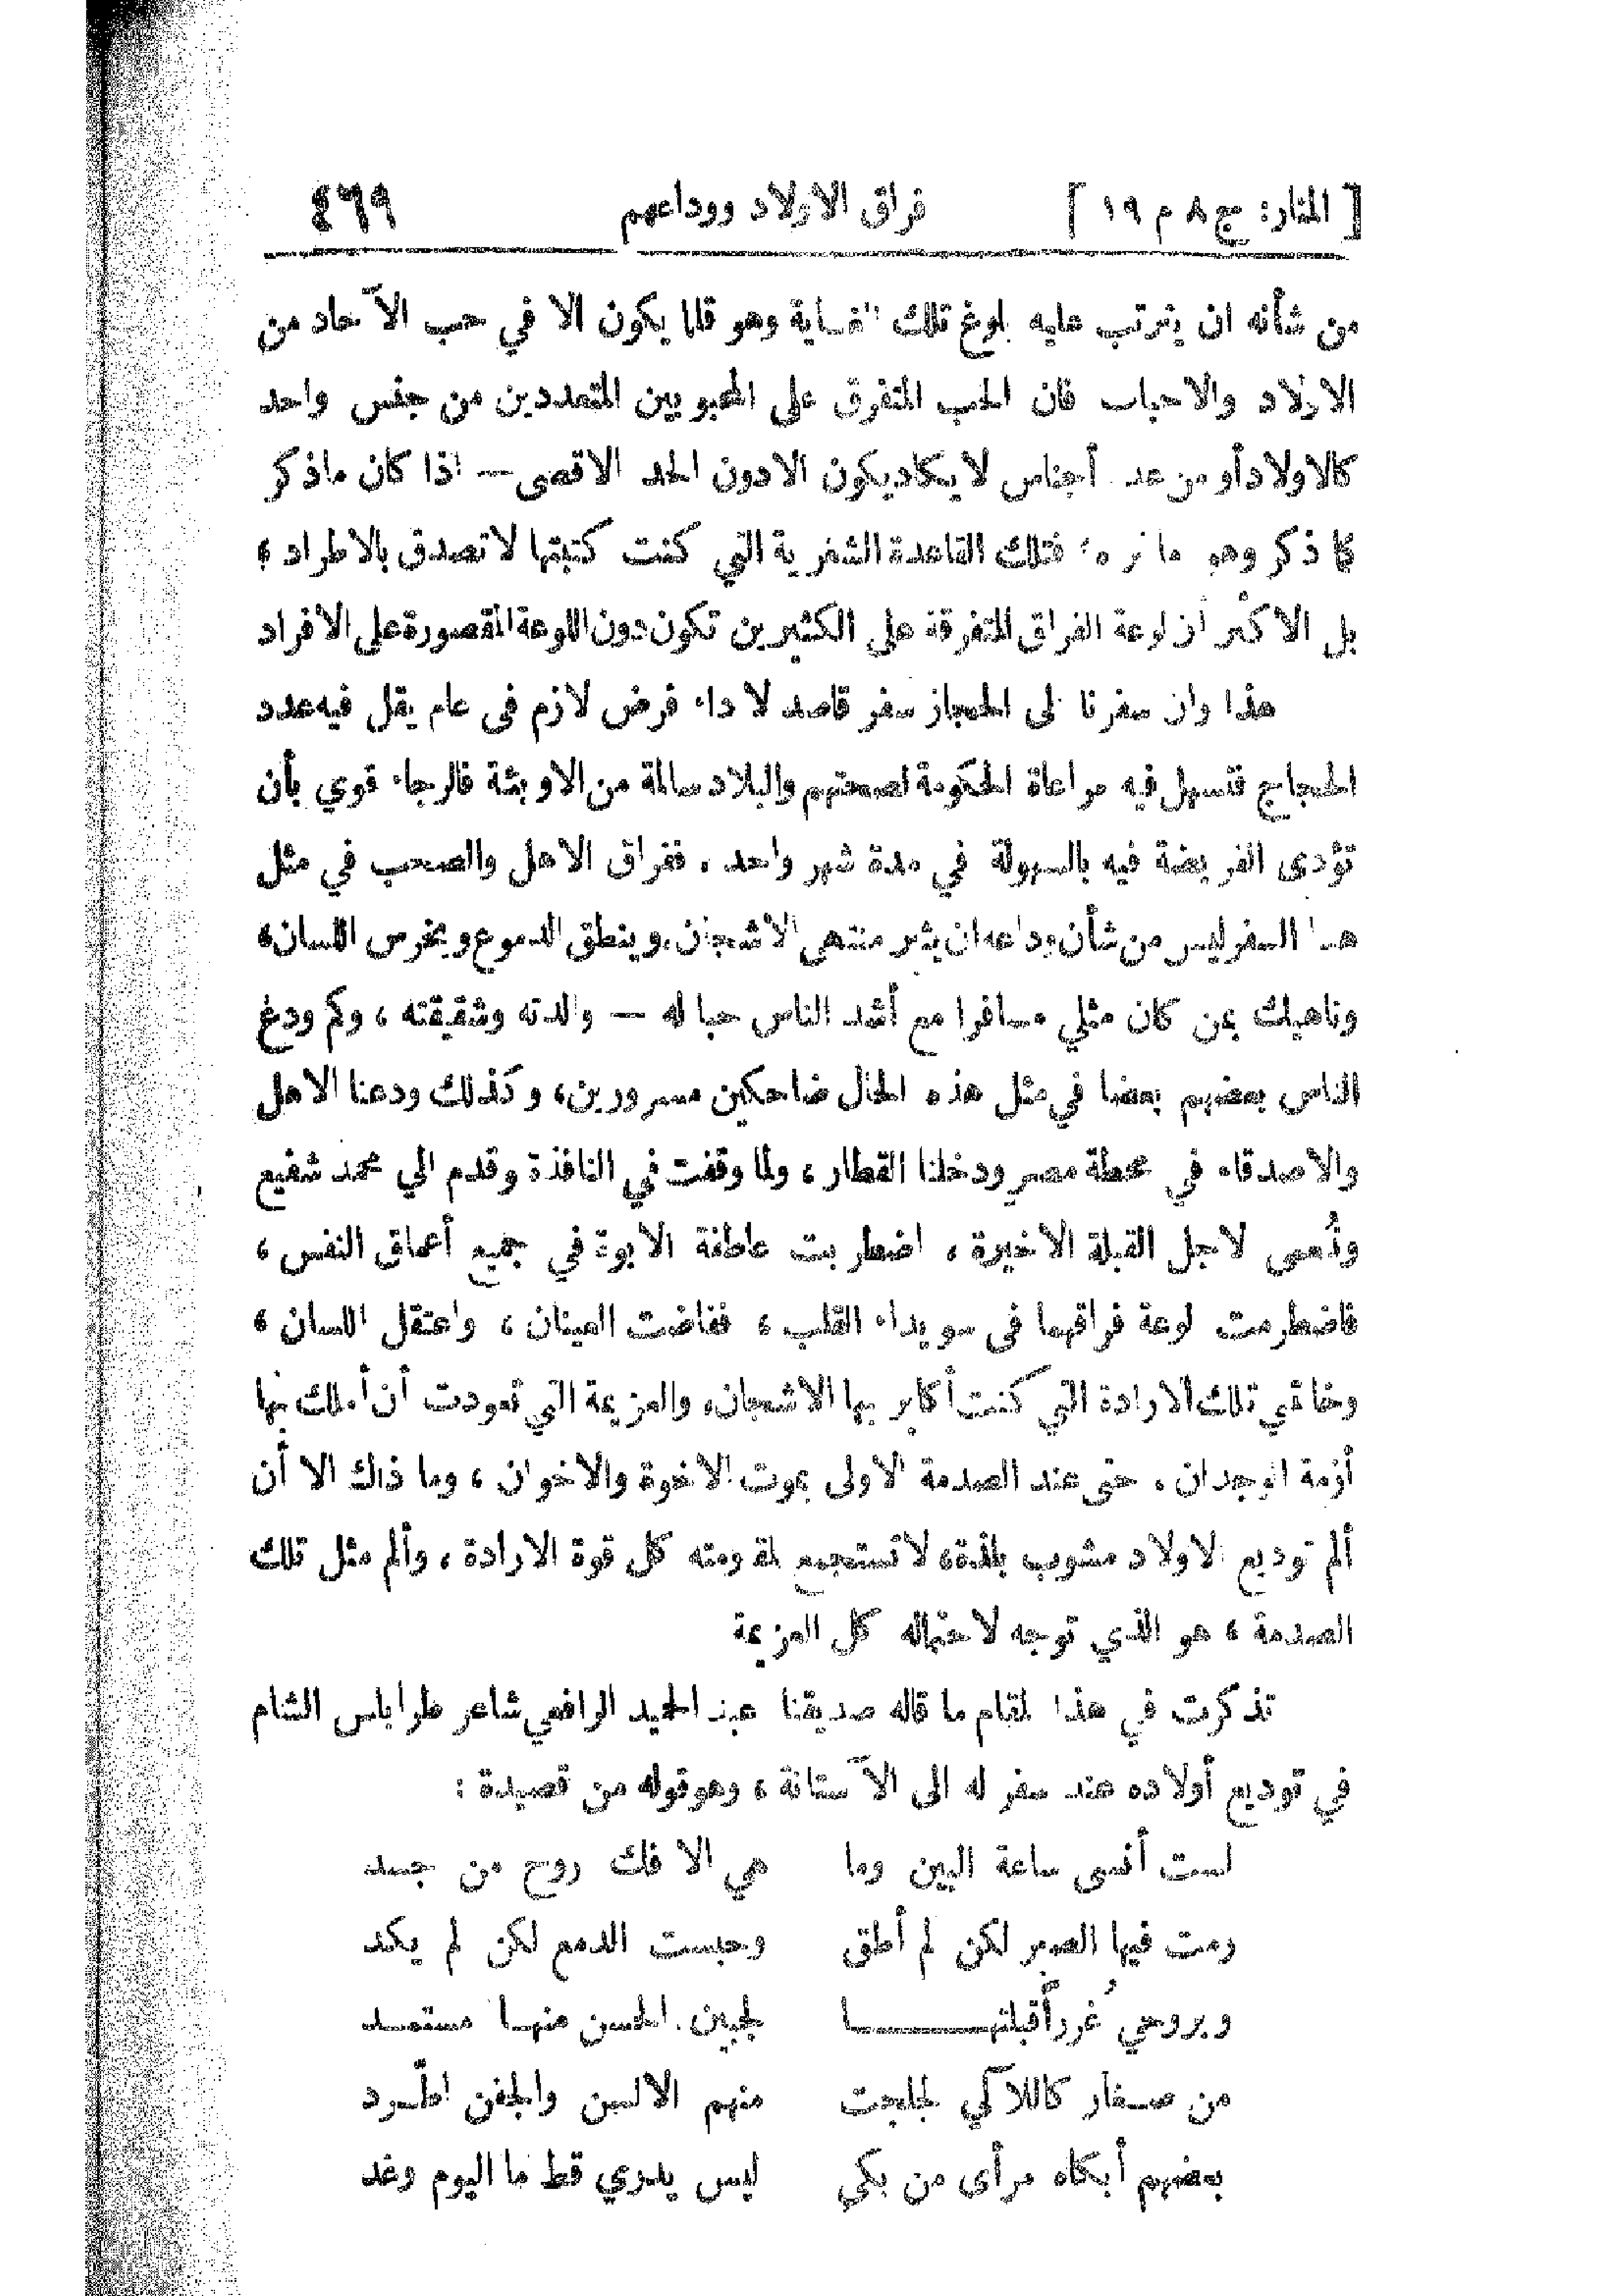 [ المنار: ج ٨ م ١٩ ] فراق الاولاد ووداعهم ٤٦٩
من شأنه ان يترتب عليه بلوغ تلك الغاية وهو قلما يكون الا في حب الآحاد من
الاولاد والاحباب فان الحب المتفرق على المحبوبين المتعددين من جنس واحد
كالاولاد أو من عدة أجناس لا يكاد يكون الا دون الحد الاقصى — اذا كان ما ذكر
كما ذكر وهو ما نراه، فتلك القاعدة الشعرية التي كنت كتبتها لا تصدق بالاطراد ،
بل الاكثر أن لوعة الفراق المتفرقة على الكثيرين تكون دون اللوعة المقصورة على الافراد
هذا وان سفرنا الى الحجاز سفر قاصد لاداء فرض لازم في عام يقل فيه عدد
الحجاج فتسهل فيه مراعاة الحكومة لصحتهم والبلاد سالمة من الاوبئة فالرجاء قوي بأن
تؤدى الفريضة فيه بالسهولة في مدة شهر واحد . ففراق الاهل والصحب في مثل
هذا السفر ليس من شأن وداعه ان يثير منتهى الاشجان، وينطق الدموع ويخرس اللسان،
وناهيك بمن كان مثلي مسافرا مع أشد الناس حبا له — والدته وشقيقته ، وكم ودع
الناس بعضهم بعضا في مثل هذه الحال ضاحكين مسرورين، وكذلك ودعنا الاهل
والاصدقاء في محطة مصر ودخلنا القطار ، ولما وقفت في النافذة وقدم الي محمد شفيع
ونُعمى لاجل القبلة الاخيرة ، اضطربت عاطفة الابوة في جميع أعماق النفس ،
فاضطرمت لوعة فراقهما في سويداء القلب ، ففاضت العينان ، واعتقل اللسان ،
وخانتني تلك الارادة التي كنت أكابر بها الاشجان، والعزيمة التي تعودت أن أملك بها
أزمة الوجدان . حتى عند الصدمة الاولى بموت الاخوة والاخوان ، وما ذاك الا أن
ألم توديع الاولاد مشوب بلذة، لا تستجمع لمقاومته كل قوة الارادة ، وألم مثل تلك
الصدمة ، هو الذي توجه لاحتماله كل العزيمة
تذكرت في هذا المقام ما قاله صديقنا عبد الحميد الرافعي شاعر طرابلس الشام
في توديع أولاده عند سفر له الى الآستانة ، وهو قوله من قصيدة :
لست أنسى ساعة البين وما هي الا فك روح من جسد
رمت فيها الصبر لكن لم أطق وحبست الدمع لكن لم يكد
وبروحي غُرراً قبلتهــــا لجبين الحسن منهــا مستمــد
من صغار كاللآلي لجلجت منهم الالسن والجفن اطّــرد
بعضهم أبكاه مرأى من بكى ليس يدري قط ما اليوم وغد